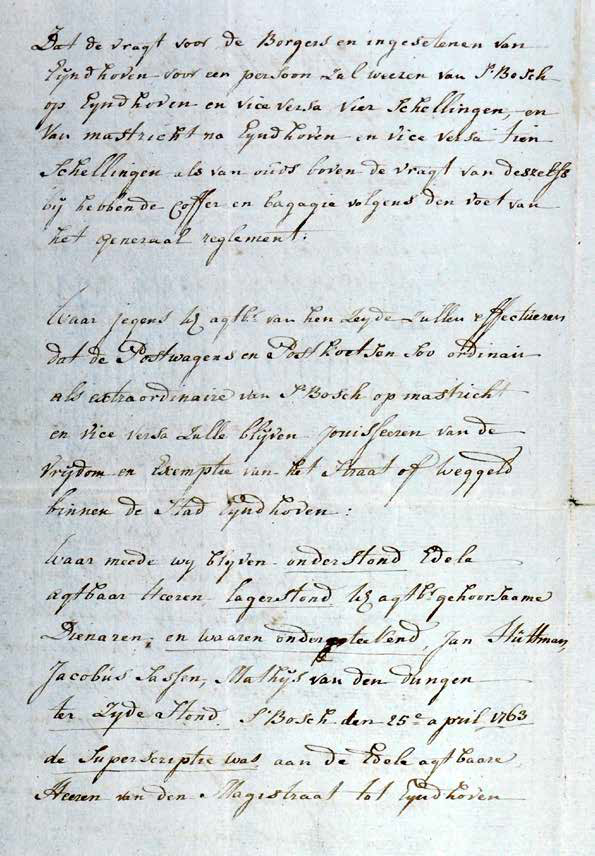 Dat de vragt voor de Borgers en ingesetenen van
Eijndhoven voor een persoon zal weesen van S. Bosch
op Eyndhoven en vice versa vier Schellingen, en
van mastricht na Eyndhoven en vice versa tien
Schellingen als van ouds boven de vragt van deszelfs
bij hebbende Coffer en bagagie volgens den voet van
het generaal reglement:
Waar jegens UE agtb. van hen Zeyde Zullen effectueren
dat de Postwagens en Postkoetsen soo ordinair
als extraordinaire van S. Bosch op mastricht
en vice versa Zulle blijven jouisseeren van de
vrijdom en Exemptie van het Straat of weggeld
binnen de Stad Eyndhoven:
Waar meede wy blyven onderstond Edele
agtbaar Heeren lagerstond UE agtb. gehoorsaame
Dienaren, en waaren onderteekend, Jan Hüttman,
Jacobus Sassen, Mathijs van den dungen
ter Zyde Stond S. Bosch den 25e april 1763
de Superscriptie was aan de Edele agtbaare
Heeren van den Magistraat tot Eyndhoven